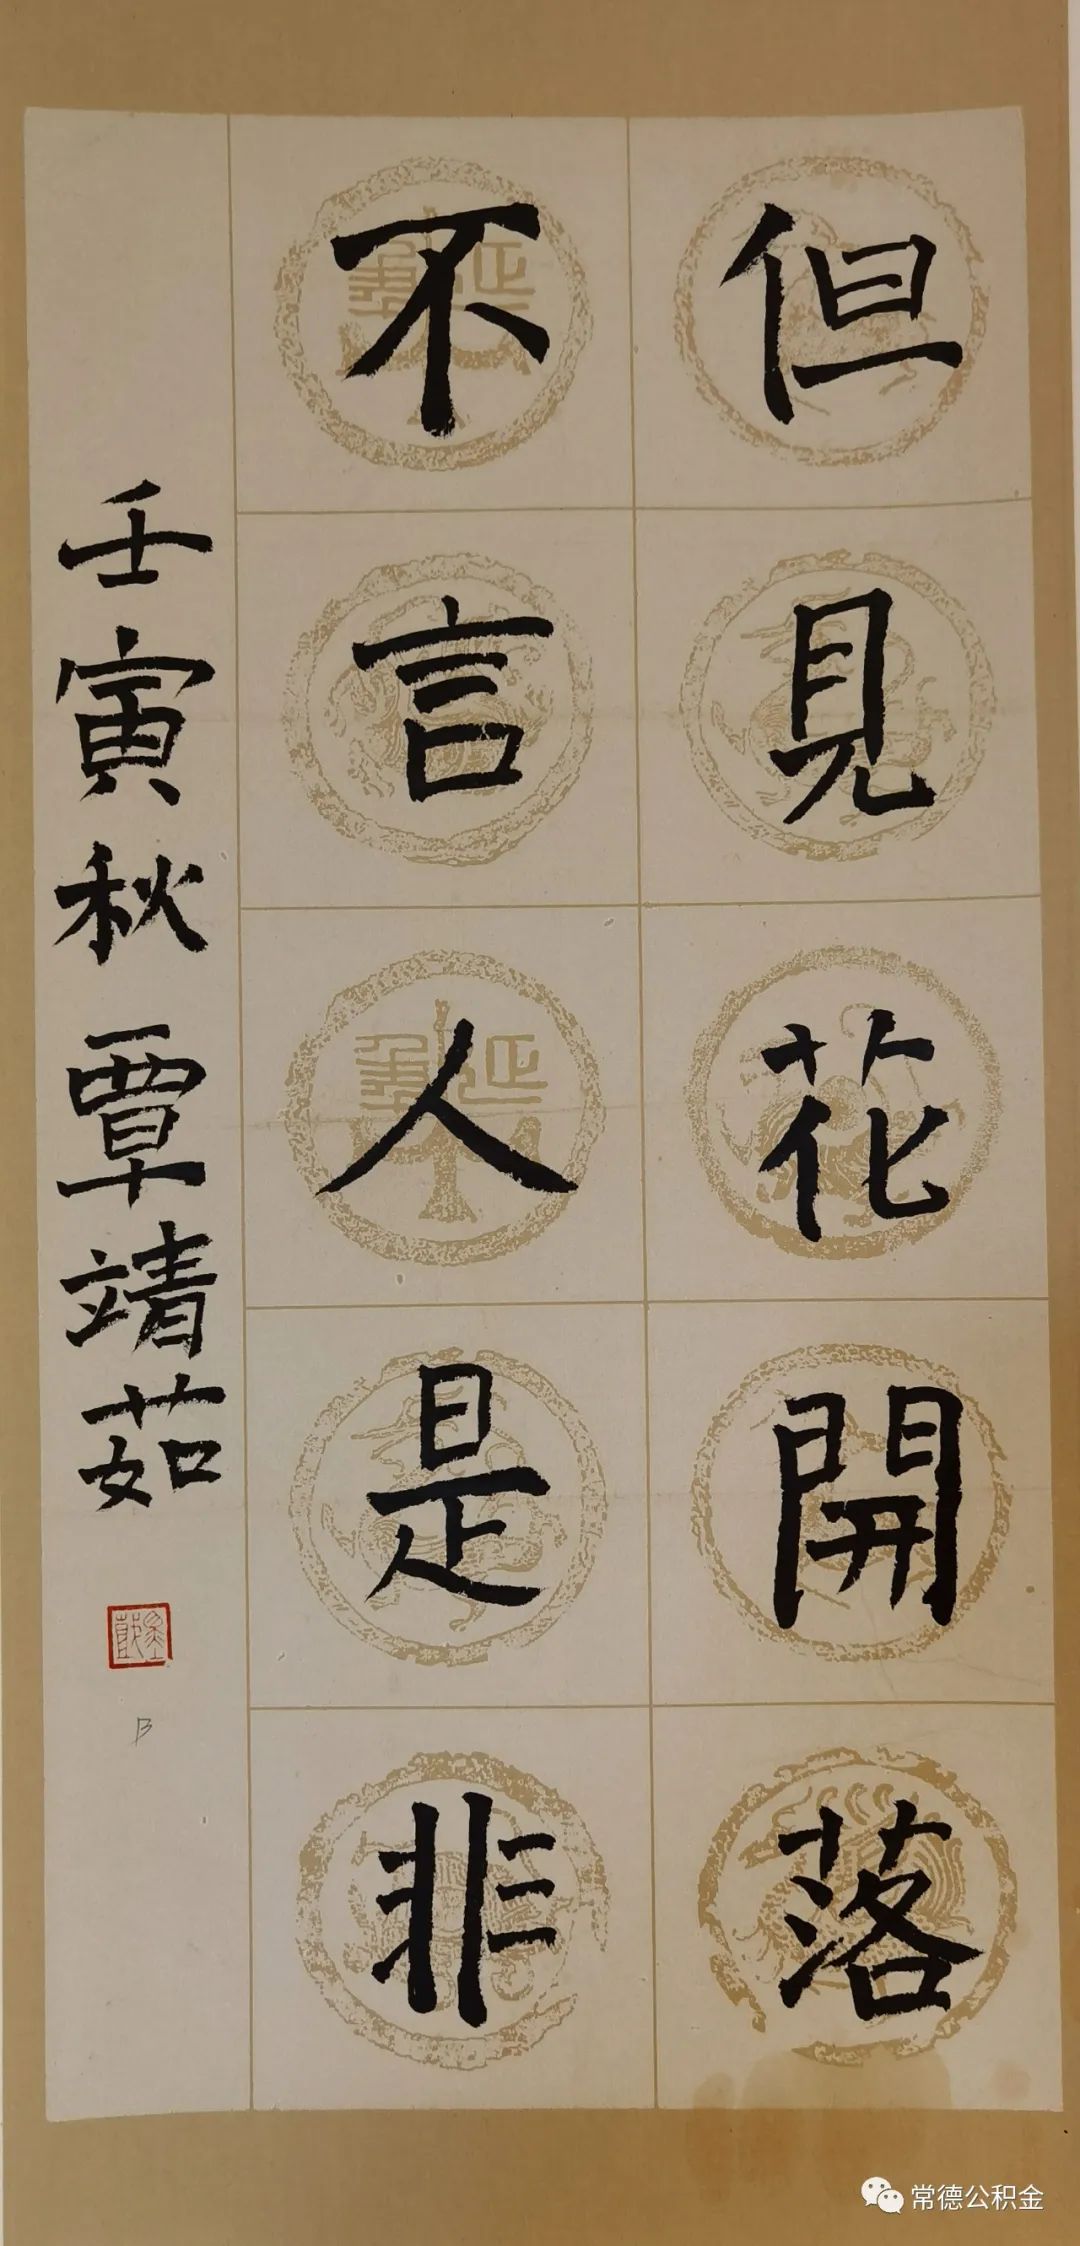 但見花開落
不言人是非
壬寅秋 覃靖茹
常德公积金